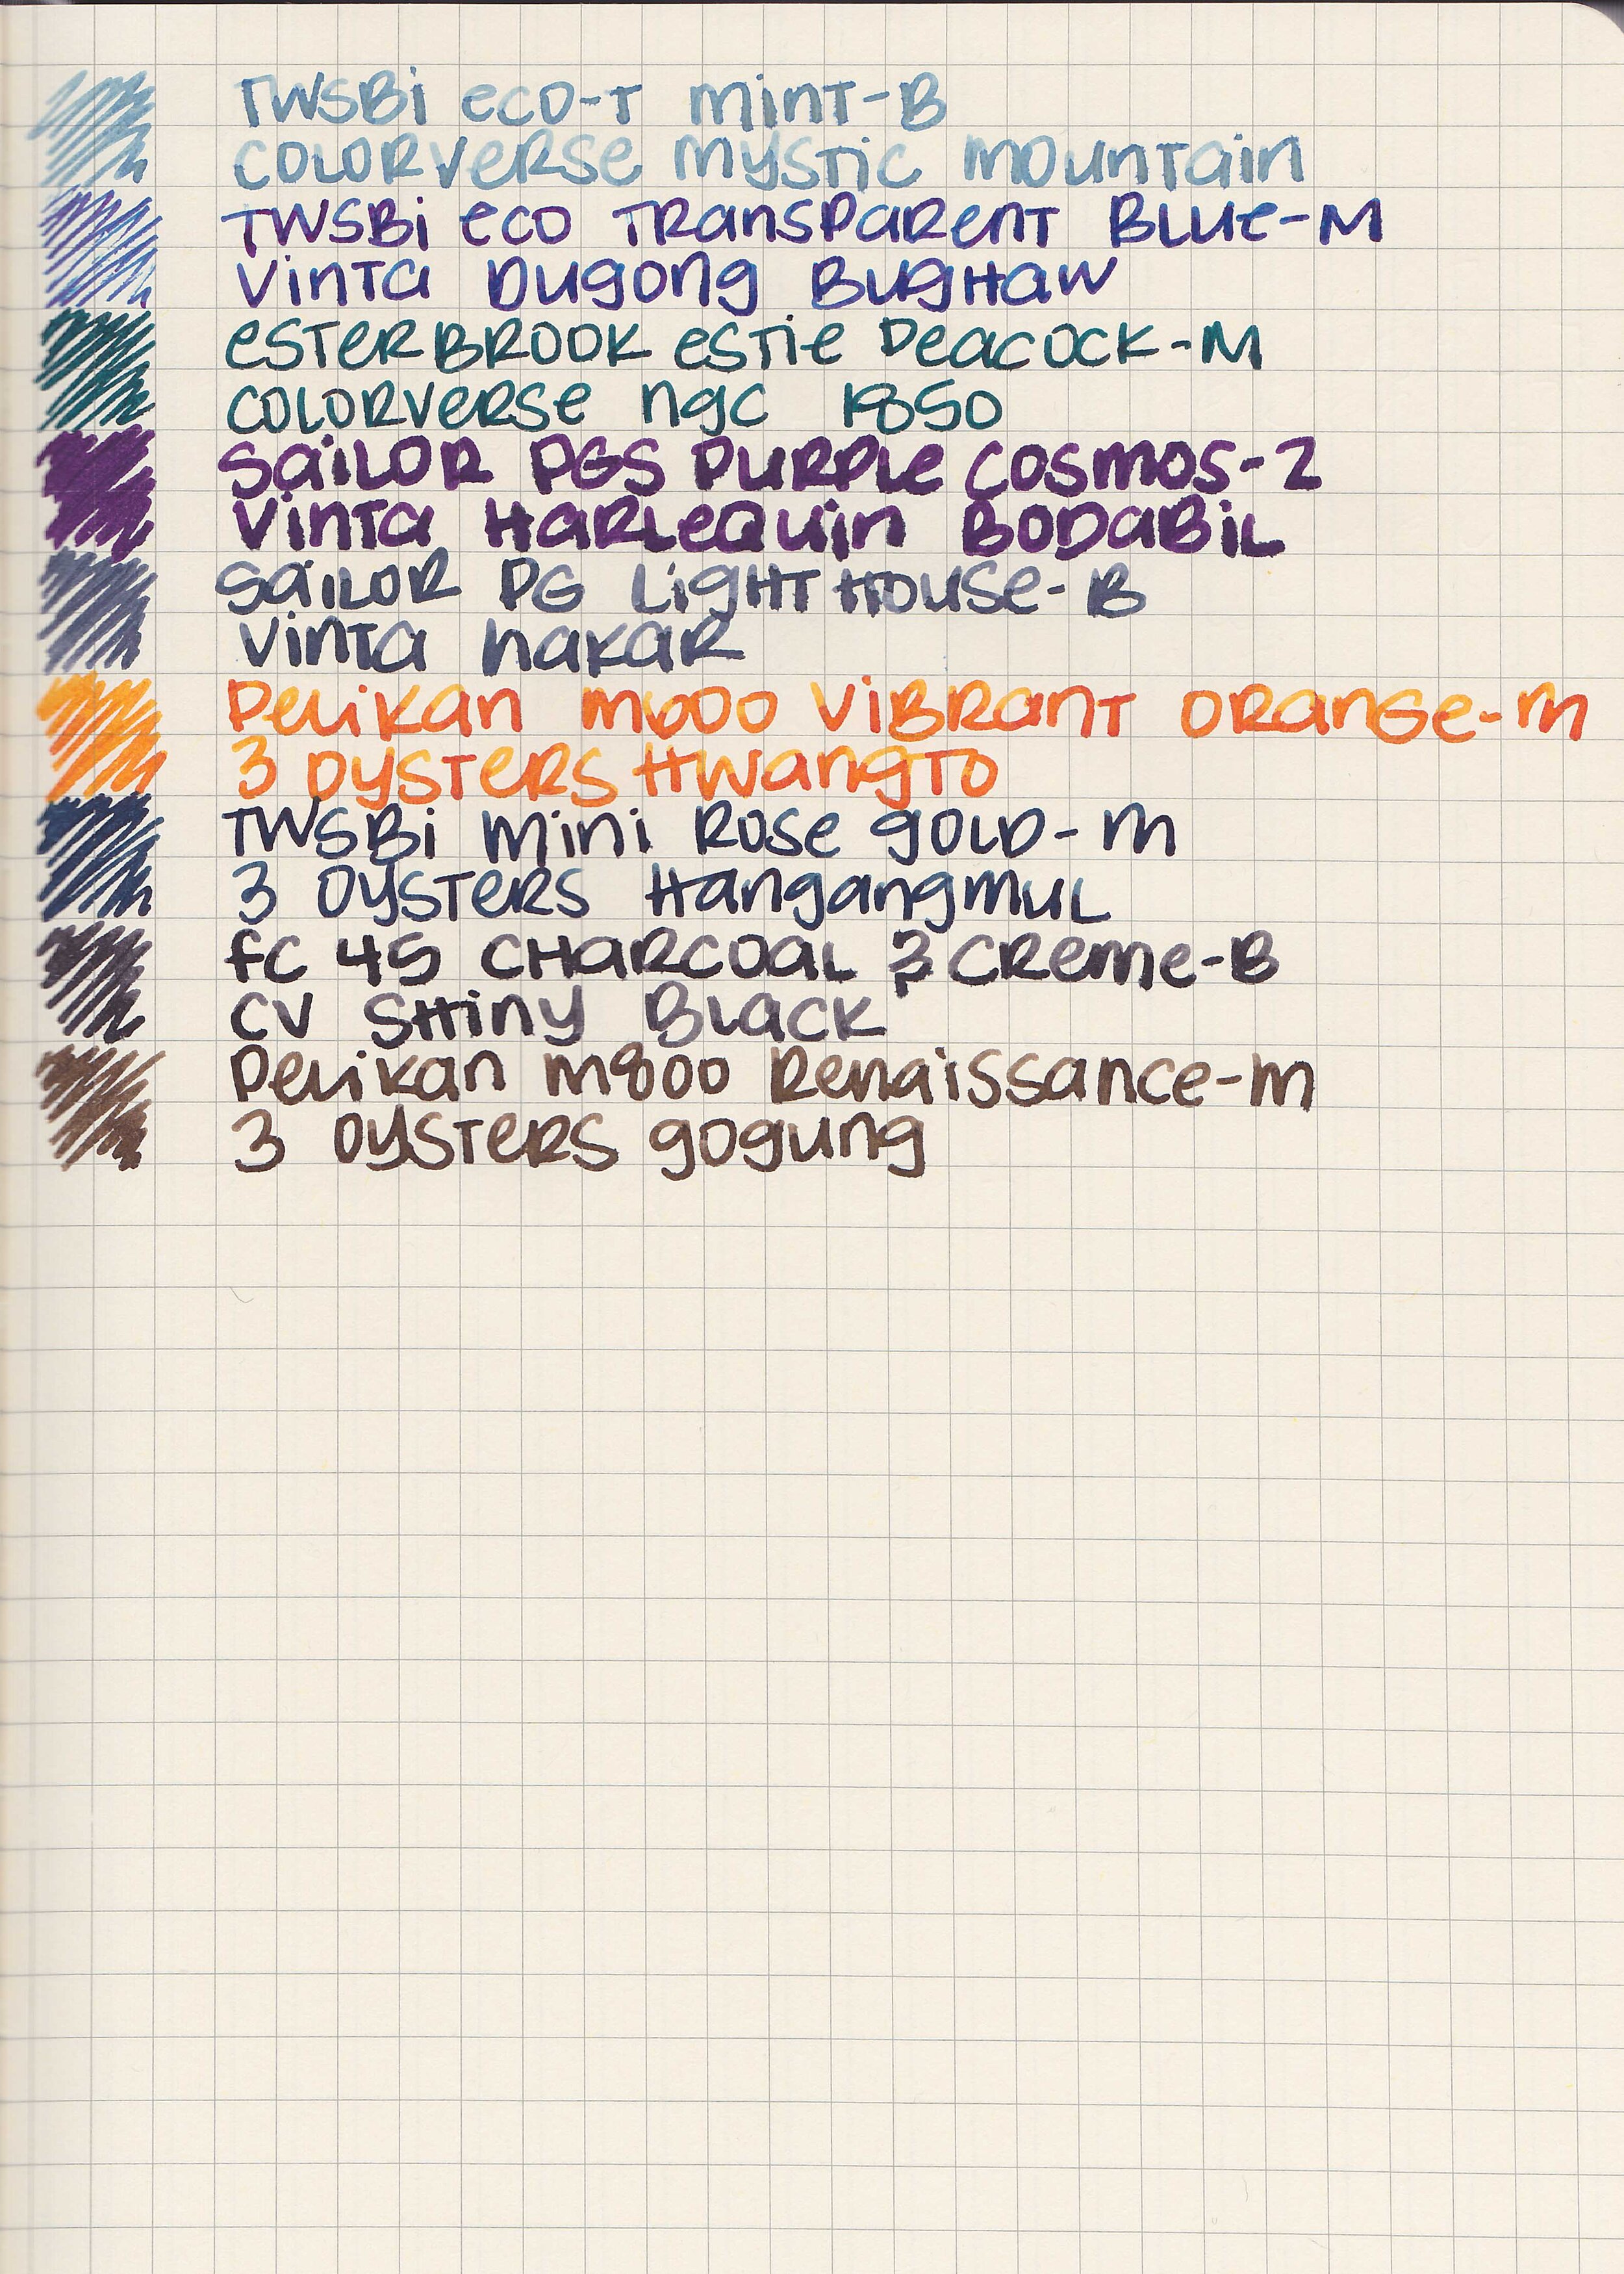 TWSBi eco-T mint-B
COLORVERSE mystic mountain
TWSBi eco Transparent Blue-M
Vinta Dugong Bughaw
Esterbrook Estie Peacock-M
Colorverse ngc 1850
Sailor PGS Purple Cosmos-Z
Vinta Harlequin Bodabil
Sailor PG Lighthouse-B
Vinta nakar
Pelikan m600 Vibrant Orange-m
3 Oysters Hwangto
TWSBi mini Rose gold-m
3 Oysters Hangangmul
FC 45 Charcoal & Creme-B
CV Shiny Black
Pelikan m800 Renaissance-m
3 Oysters gogung